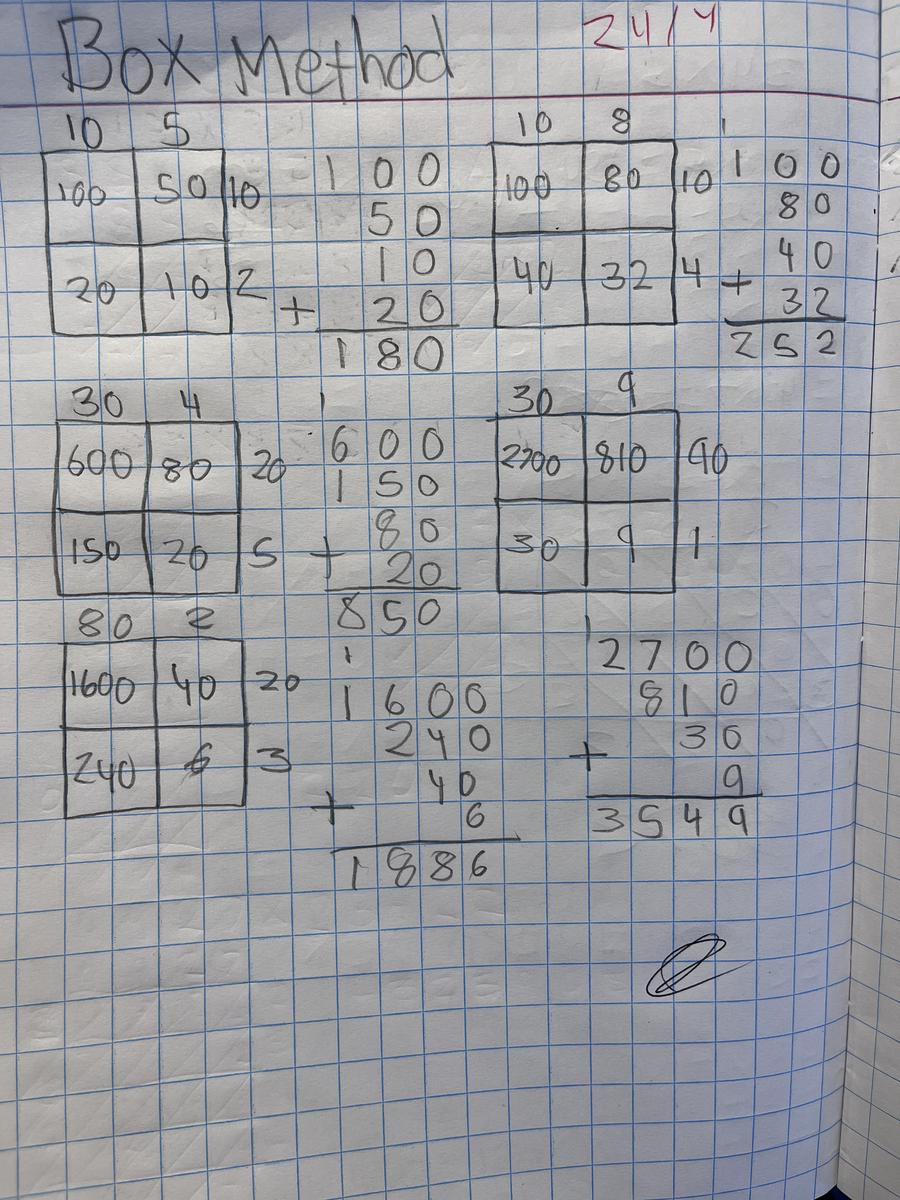 Box Method 24/4
10 5
100 50 10
20 10 2
100
50
10
+ 20
180
10 8
100 80 10
40 32 4
1
100
80
40
+ 32
252
30 4
600 80 20
150 20 5
1
600
150
80
+ 20
850
30 9
2700 810 90
30 9 1
80 2
1600 40 20
240 6 3
1
1600
240
40
+ 6
1886
1
2700
810
30
+ 9
3549